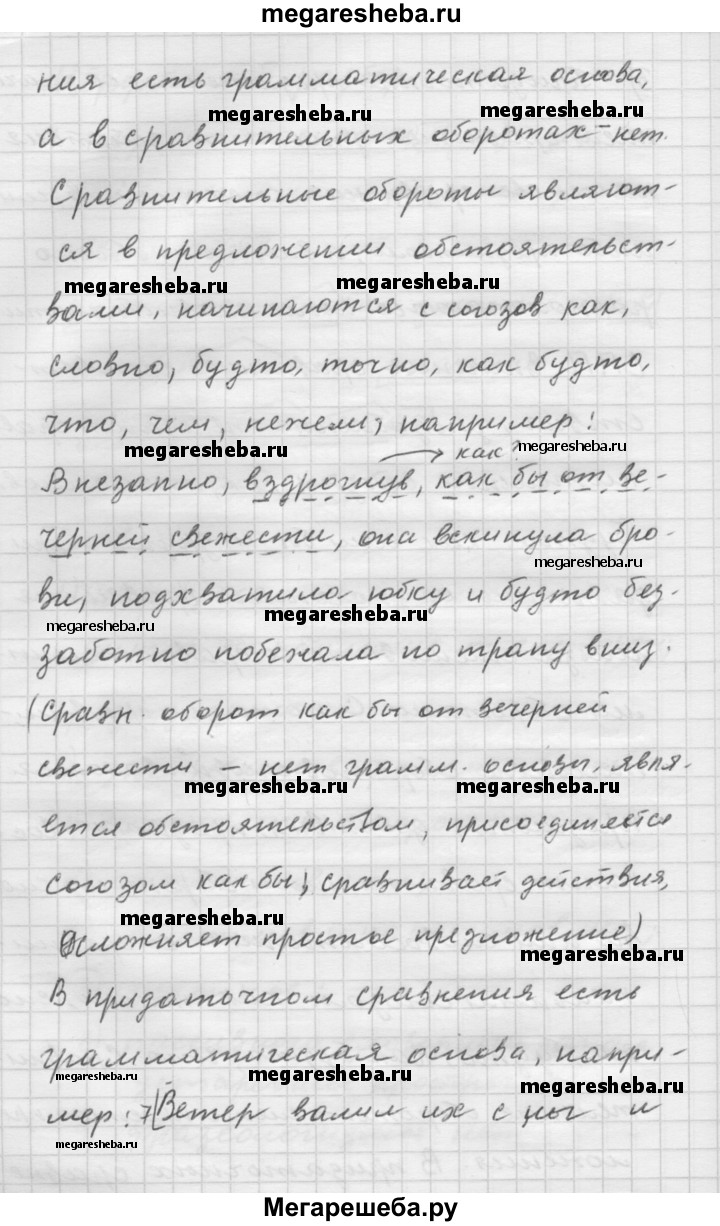 megaresheba.ru
ния есть грамматическая основа,
megaresheba.ru megaresheba.ru
а в сравнительных оборотах – нет.
Сравнительные обороты являют-
ся в предложении обстоятельст-
megaresheba.ru megaresheba.ru
вами, начинаются с союзов как,
словно, будто, точно, как будто,
что, чем, нежели, например:
megaresheba.ru как? megaresheba.ru
Внезапно, вздрогнув, как бы от ве-
черней свежести, она вскинула бро-
megaresheba.ru
ви, подхватила юбку и будто без-
megaresheba.ru megaresheba.ru
заботно побежала по трапу вниз.
(Сравн. оборот как бы от вечерней
свежести – нет грамм. основы, явля-
megaresheba.ru megaresheba.ru
ется обстоятельством, присоединяется
союзом как бы, сравнивает действия,
megaresheba.ru
осложняет простое предложение)
megaresheba.ru
В придаточном сравнения есть
грамматическая основа, напри-
megaresheba.ru megaresheba.ru megaresheba.ru
мер: 7[Ветер валил их с ног и
megaresheba.ru
Мегарешеба.ру